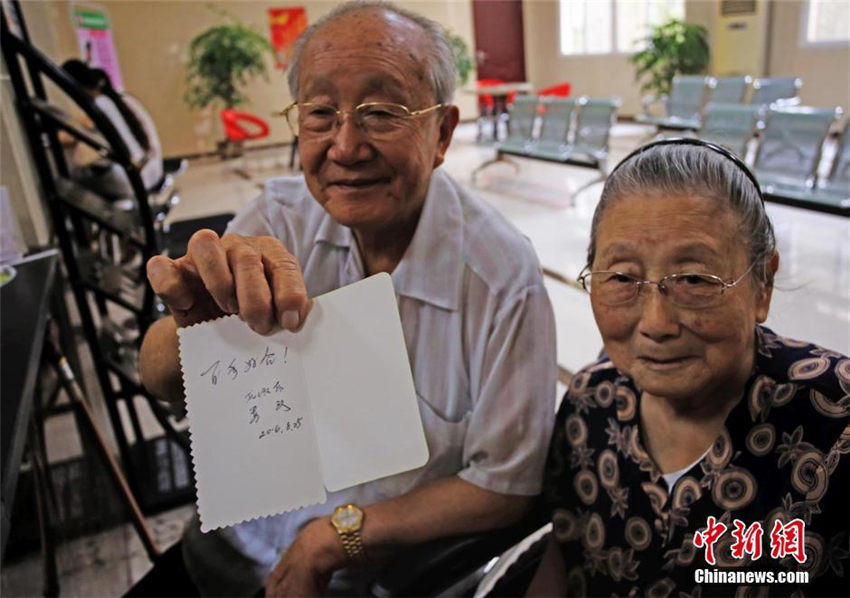 百年好合!
2016.8.25
中新网
Chinanews.com